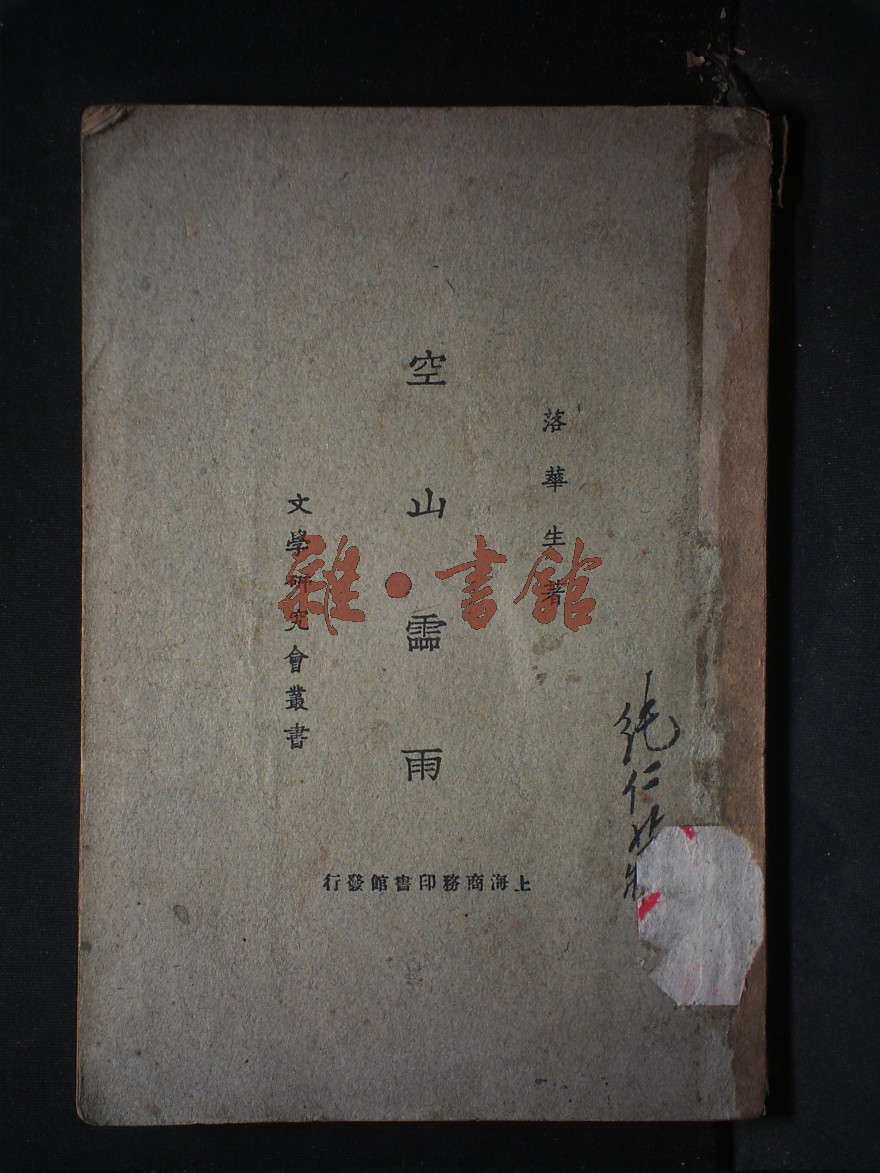 落華生著
空山靈雨
文學研究會叢書
上海商務印書館發行
雜·書館
純仁